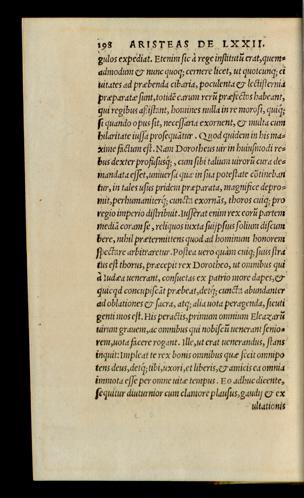 198 ARISTEAS DE LXXII.
gulos expediat. Etenim sic à rege institutũ erat, quem⸗
admodum & nunc quoq; cernere licet, ut quotcunq; ci
uitates ad præbenda cibaria, poculenta & lectisternia
præparatæ sunt, totidẽ earum rerũ præfectos habeant,
qui regibus assistant, homines nulla in re morosi, quiq;
si quando opus sit, necessaria exornent, & multa cum
hilaritate iussa prosequãtur. Quod quidem in his ma⸗
xime factum est. Nam Dorotheus uir in huiusmodi re⸗
bus dexter profususq;, cum sibi talium uirorũ cura de⸗
mandata esset, uniuersa quæ in sua potestate cõtineban
tur, in tales usus pridem præparata, magnifice depro⸗
mit, perhumaniterq; cuncta exornãs, thoros cuiq; pro
regio imperio distribuit. Iusserat enim rex eorũ partem
mediã coram se, reliquos iuxta suipsius solium discum
bere, nihil prætermittens quod ad hominum honorem
spectare arbitraretur. Postea uero quàm cuiq; suus stra
tus est thorus, præcepit rex Dorotheo, ut omnibus qui
à Iudæa uenerant, consuetas ex patrio more dapes, &
quicqd concupiscãt præbeat, detq; cuncta abundanter
ad oblationes & sacra, atq; alia uota peragenda, sicuti
genti mos est. His peractis, primum omnium Eleazarũ
uirum grauem, ac omnibus qui nobiscũ uenerant senio⸗
rem, uota facere rogant. Ille, ut erat uenerandus, stans
inquit: Impleat te rex bonis omnibus quæ fecit omnipo
tens deus, detq; tibi, uxori, et liberis, & amicis ea omnia
immota esse per omne uitæ tempus. Eo adhuc dicente,
sequitur diuturnior cum clamore plausus, gaudij & ex
ultationis